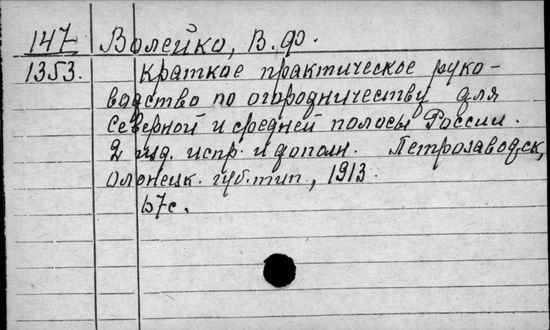 147 Волейко, В.Ф.
1353. Краткое практическое руко-
водство по огородничеству для
северной и средней полосы России.
2 изд. испр. и дополн. Петрозаводск,
Олонецк. губ. тип., 1913.
67 с.